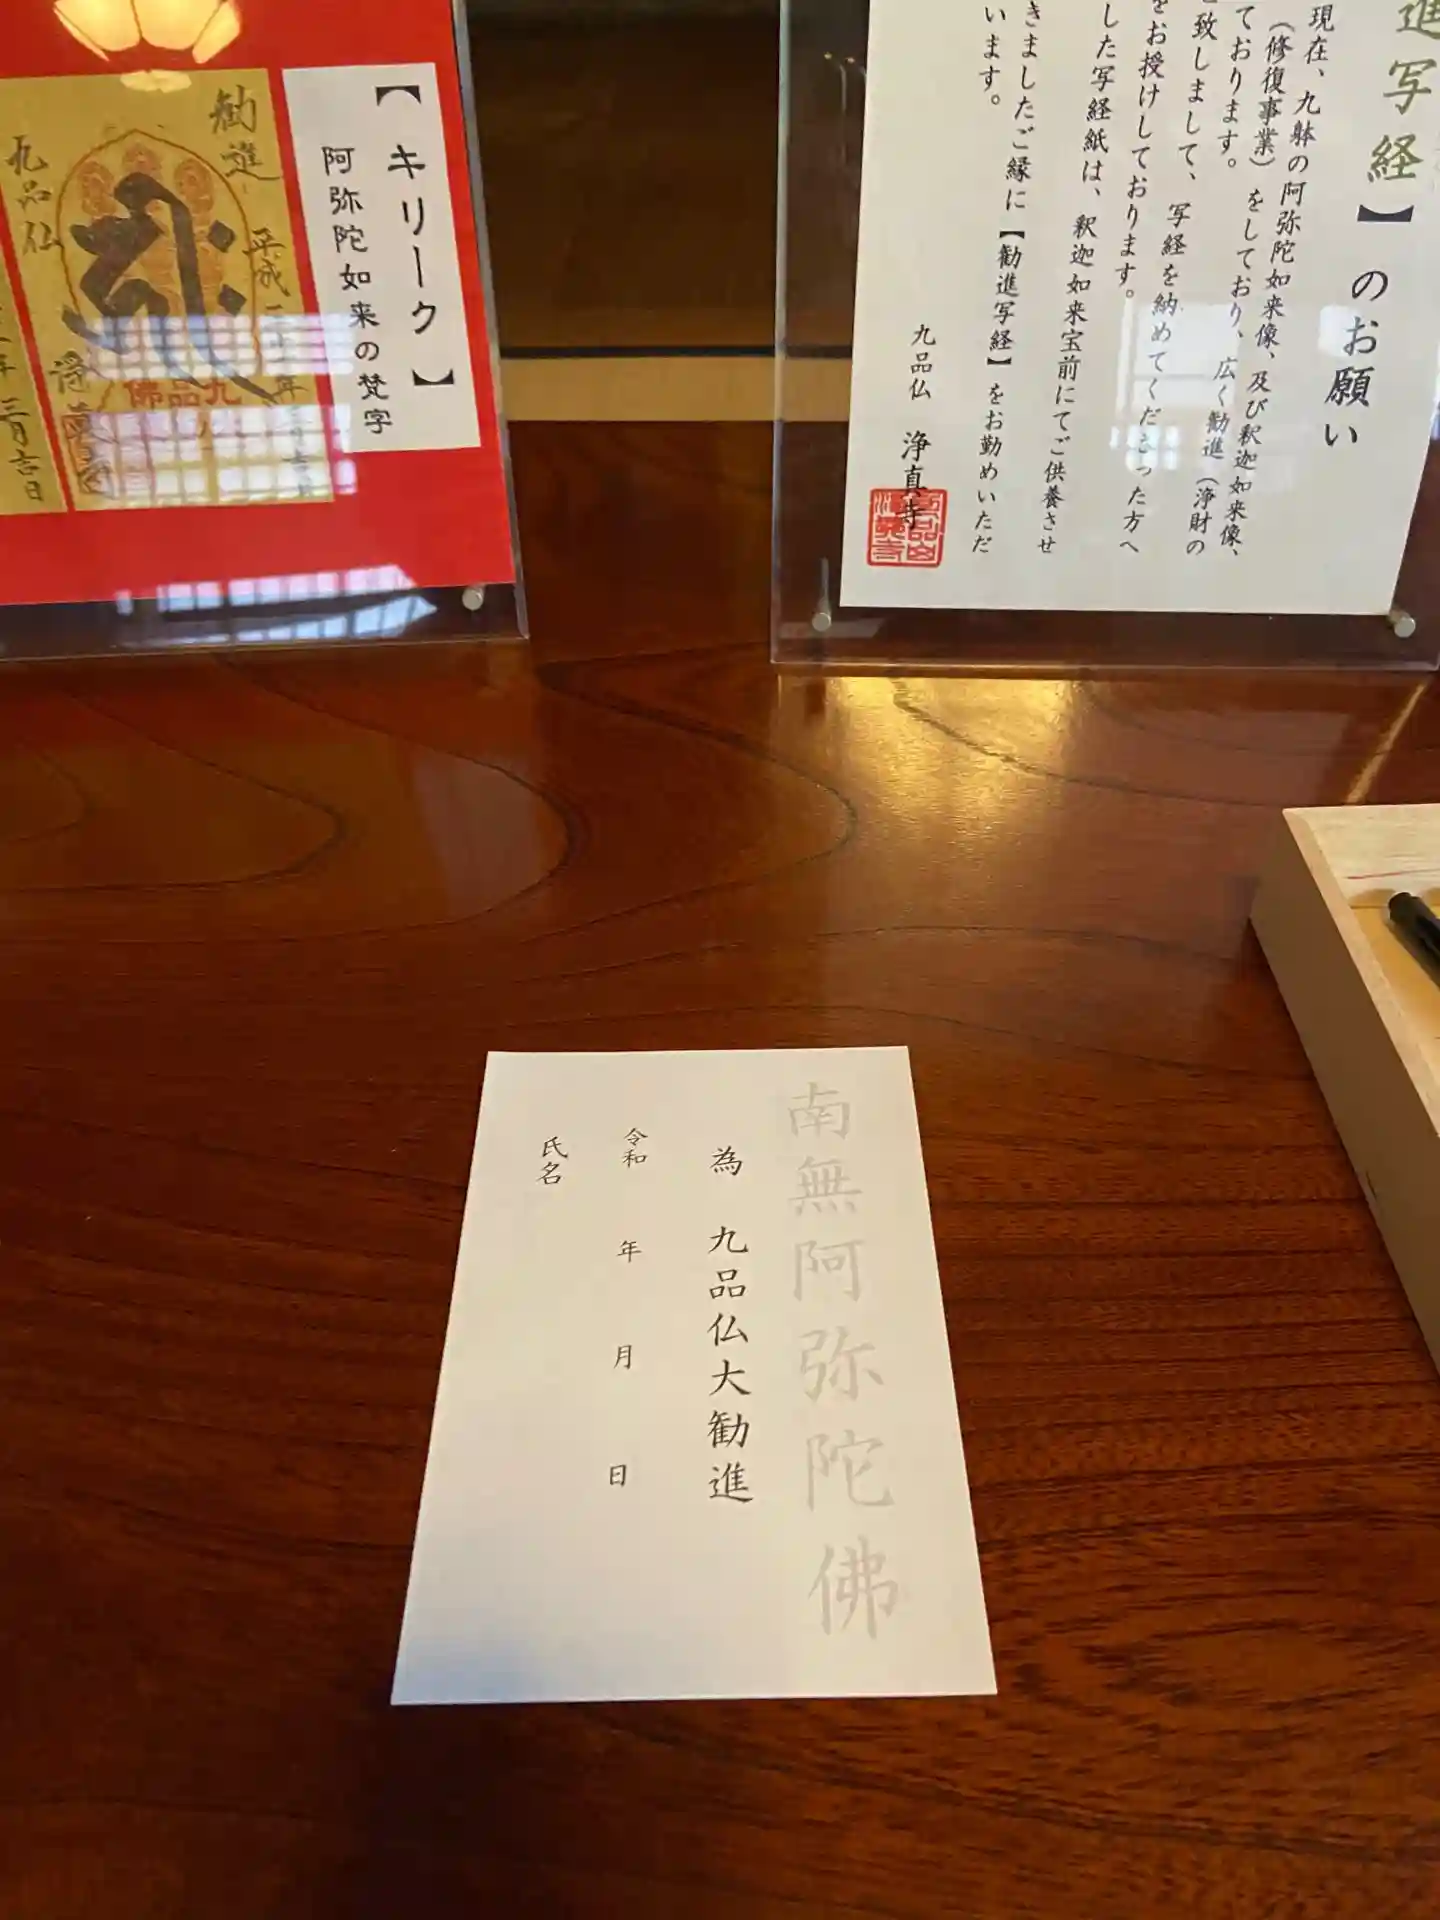 勧進
九品仏
平成
三月吉日
九品佛
【キリーク】
阿弥陀如来の梵字
進写経】のお願い
現在、九躰の阿弥陀如来像、及び釈迦如来像、
（修復事業）をしており、広く勧進（浄財の
ております。
致しまして、写経を納めてくださった方へ
をお授けしております。
した写経紙は、釈迦如来宝前にてご供養させ
きましたご縁に【勧進写経】をお勤めいただ
います。
九品仏 浄真寺
南無阿弥陀佛
為 九品仏大勧進
令和 年 月 日
氏名